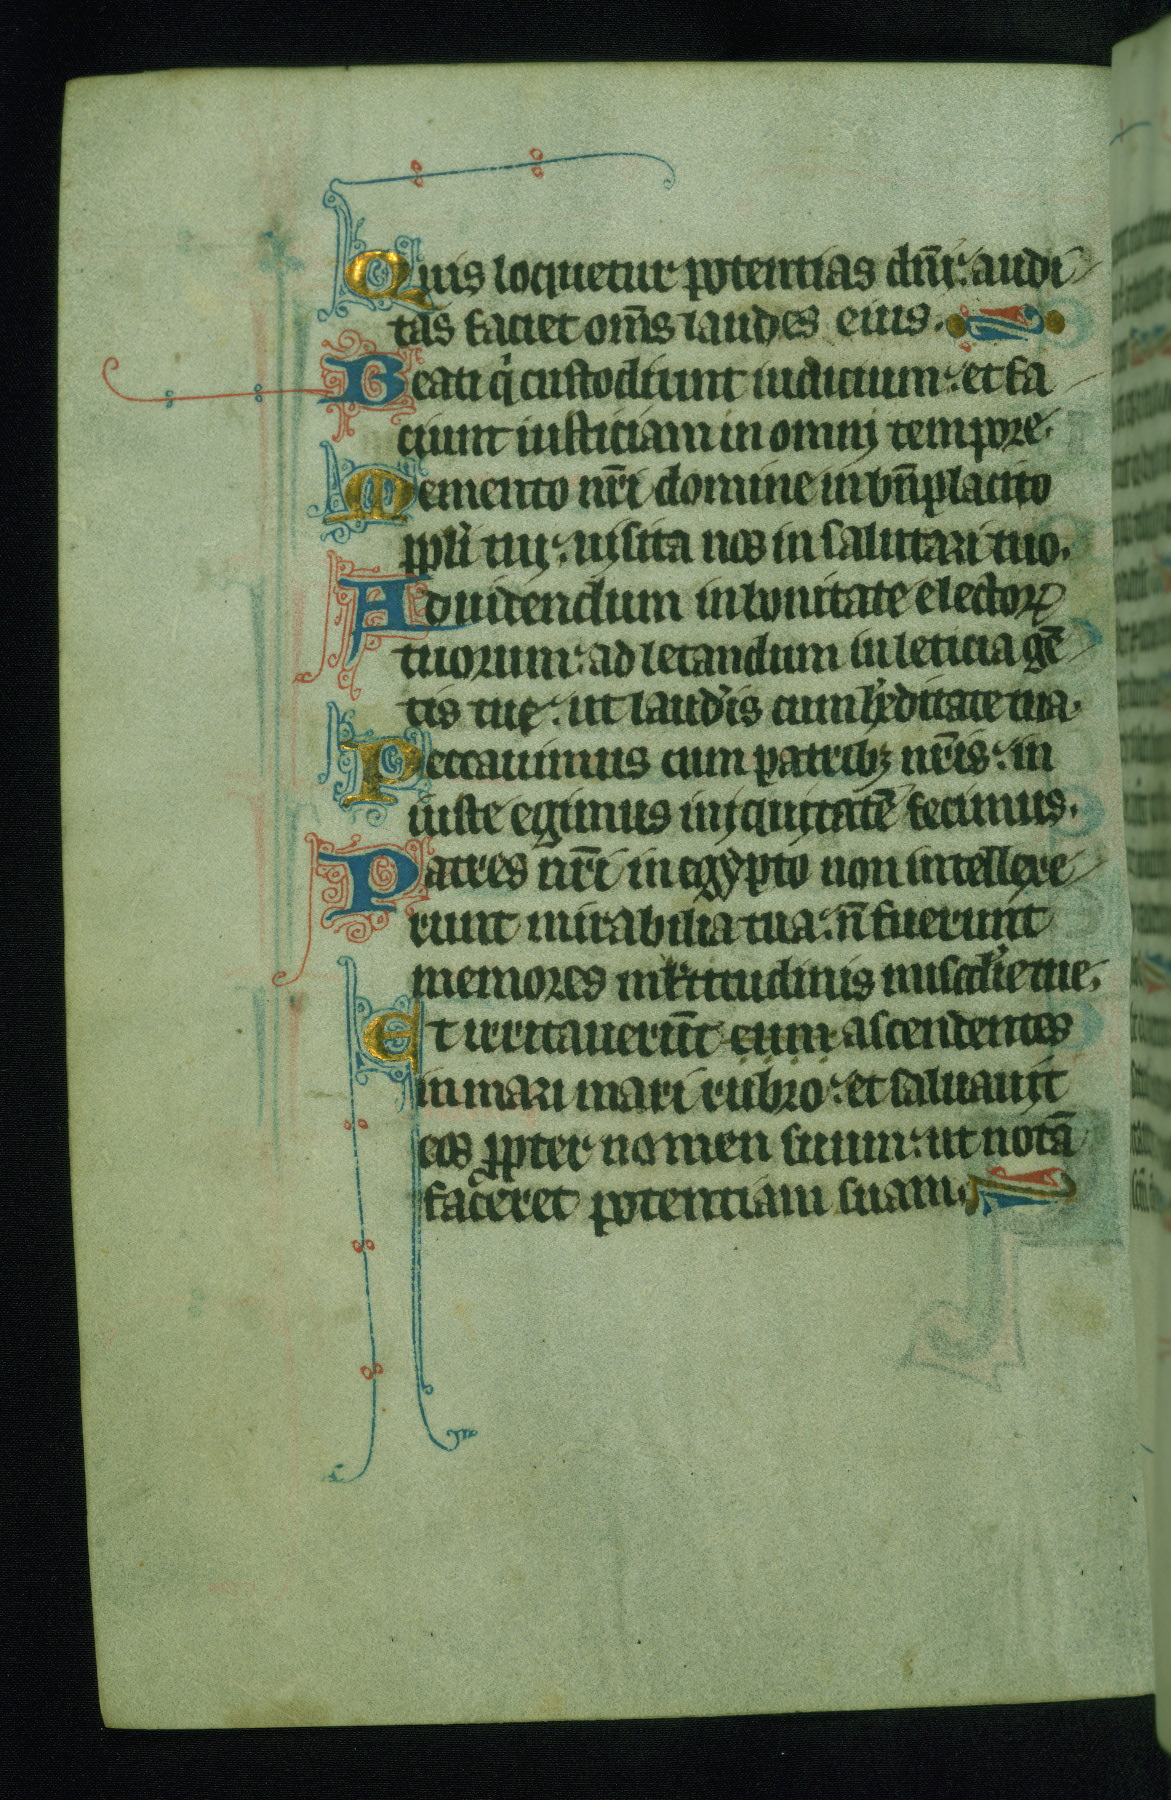 Quis loquetur potentias dn̄i: audi
tas faciet om̄s laudes eius.
Beati qͥ custodiunt iudicium: et fa
ciunt iusticiam in omni tempore.
Memento nr̄i domine in bn̄placito
ppl̓i tui: uisita nos in salutari tuo.
Ad uidendum in bonitate electoꝝ
tuorum: ad letandum in leticia gē
tis tue: ut laud̓is cum h̓editate tua.
Peccauimus cum patribꝫ nr̄is: in
iuste egimus iniquitatē fecimus.
Patres nr̄i in egypto non intellexe
runt mirabilia tua: n̄ fuerunt
memores ml̓titudinis
Et irritauerūt eum ascendentes
in mari mari rubro: et saluauit
eos ꝓpter nomen suum: ut notā
faceret potentiam suam.